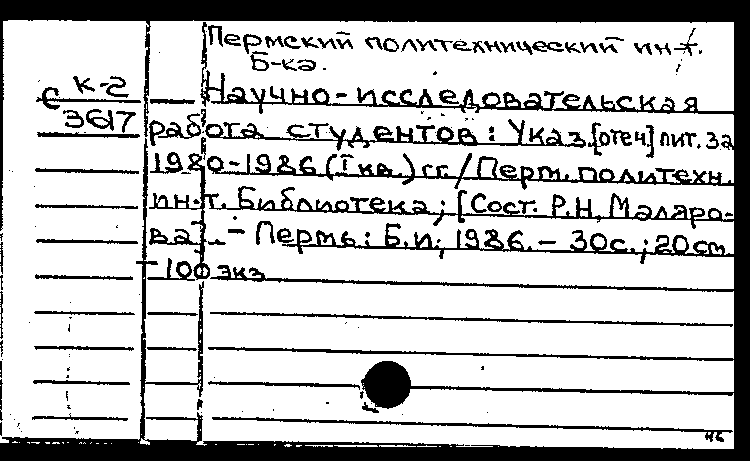 Пермский политехнический ин-т.
Б-ка.
К-2 Научно-исследовательская
С
3617 работа студентов: Указ.[отеч] лит. за
1980-1986 (I кв.) гг./Перм. политехн.
ин-т. Библиотека; [Сост. Р.Н. Маляро-
ва]. - Пермь: Б.и; 1986. - 30с.; 20см.
- 100 экз